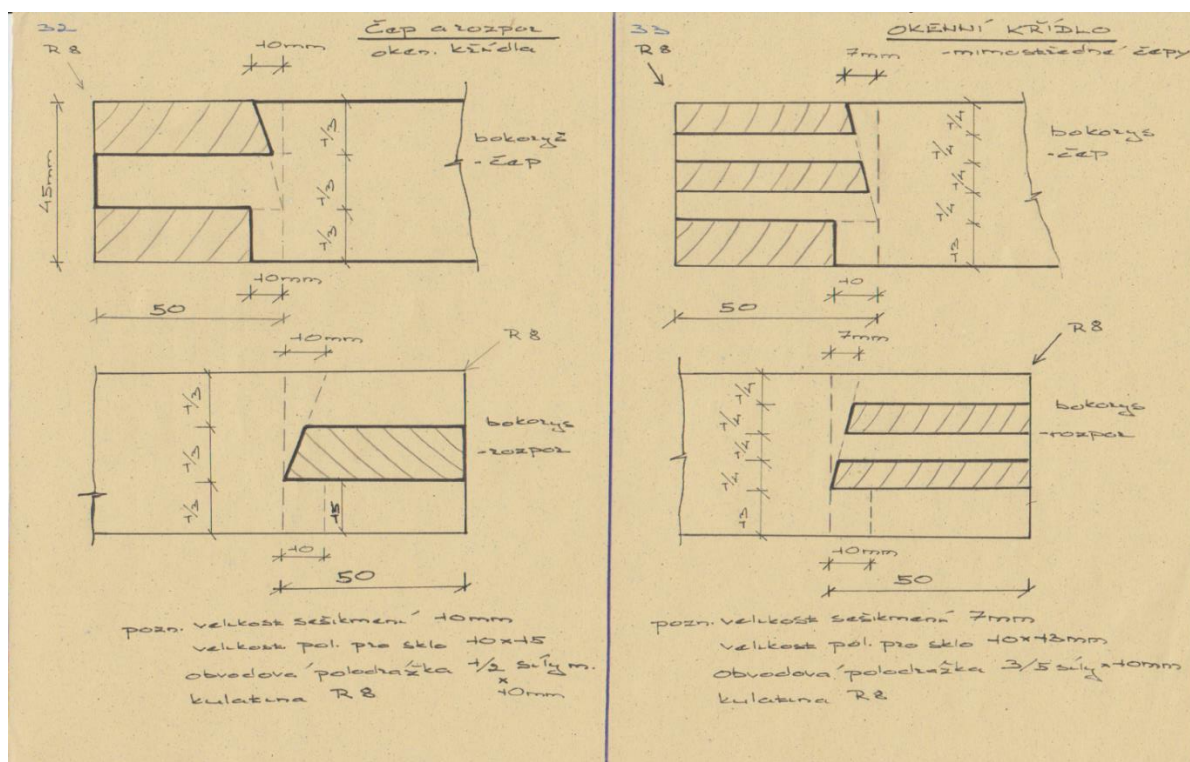 32
Čep a rozpor
oken. křídla
R 8
10mm
45mm
1/3
1/3
1/3
bokorys
- čep
10mm
50
10mm
R 8
1/3
1/3
1/3
bokorys
-rozpor
15
10
50
pozn. velikost sešikmení 10mm
velikost pol. pro sklo 10×15
obvodová polodrážka 1/2 síly m.
× 10mm
kulatina R 8
33
OKENNÍ KŘÍDLO
-mimostředné čepy
R 8
7mm
1/4
1/4
1/4
1/4
13
bokorys
-čep
10
50
7mm
R 8
1/4
1/4
1/4
1/4
13
bokorys
-rozpor
10mm
50
pozn. velikost sešikmení 7mm
velikost pol. pro sklo 10×13mm
obvodová polodrážka 3/5 síly × 10mm
kulatina R 8